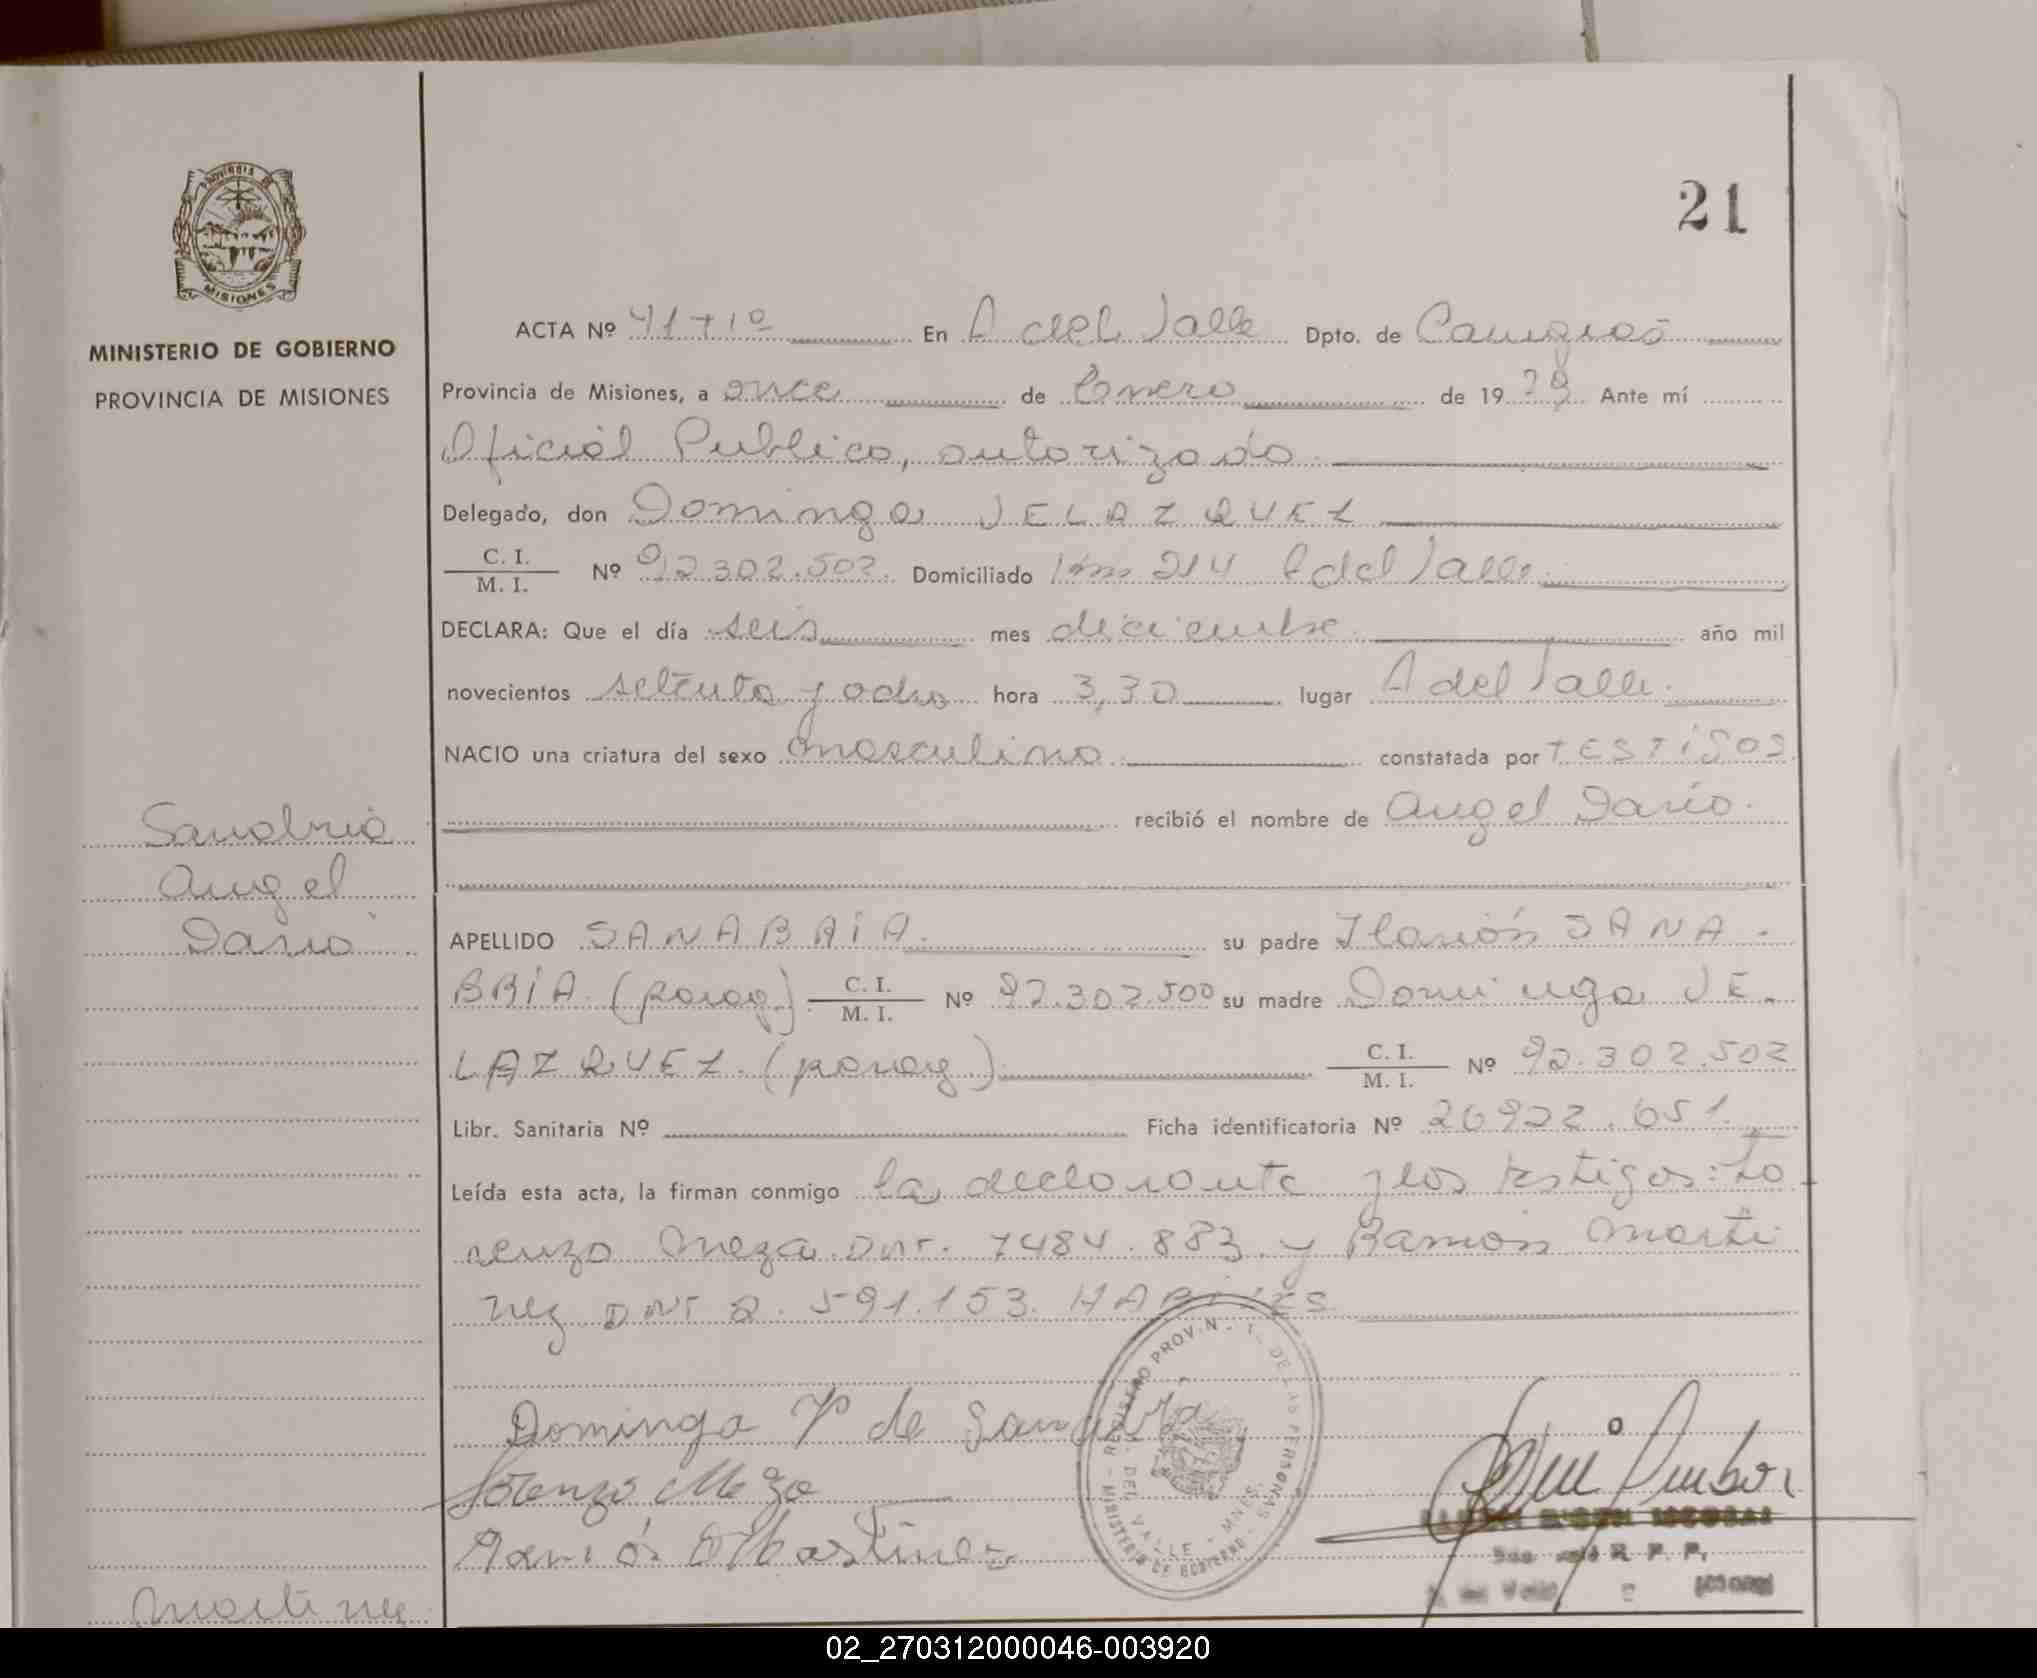 PROVINCIA DE
MISIONES
MINISTERIO DE GOBIERNO
PROVINCIA DE MISIONES
21
ACTA Nº 41 T 1º En A del Valle Dpto. de Cainguas
Provincia de Misiones, a once de Enero de 1979 Ante mí
Oficial Publico, autorizado
Delegado, don Dominga VELAZQUEZ
C. I.
M. I.
Nº 92.302.502. Domiciliado Km 214 A del Valle.
DECLARA: Que el día seis mes diciembre año mil
novecientos setenta y ocho hora 3,30 lugar A del Valle.
NACIO una criatura del sexo masculino constatada por TESTIGOS
recibió el nombre de Angel Dario.
Sanabria
Angel
Dario
APELLIDO SANABRIA. su padre Ilarión SANA-
BRIA. (parag). C. I.
M. I.
Nº 92.302.500 su madre Dominga VE-
LAZQUEZ. (parag)
C. I.
M. I.
Nº 92.302.502
Libr. Sanitaria Nº Ficha identificatoria Nº 26922.051.
Leída esta acta, la firman conmigo la declarante y los testigos: Lo
renzo Meza DNI. 7484.883. y Ramón Marti
nez DNI 2.591.153. HABILES
Dominga V de Sanabria
Lorenzo Meza
Ramón Martinez
REGISTRO PROVIN. DE LAS PERSONAS
MINISTERIO DE GOBIERNO
A. DEL VALLE - MNES.
R. P. P.
Martinez
02_270312000046-003920